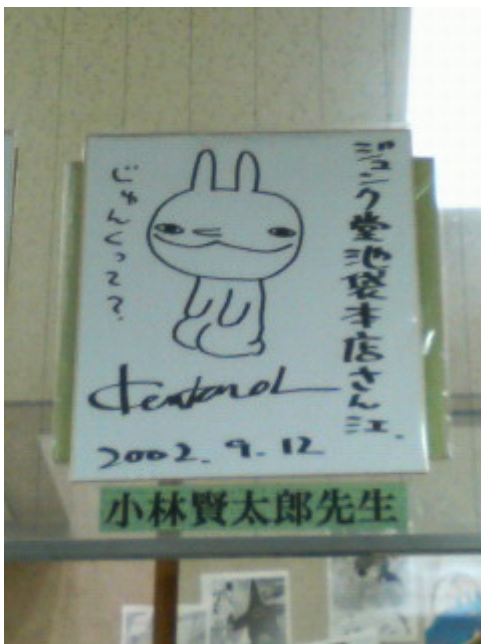 ジュンク堂池袋本店さん江.
じゅんくって?
Kentarol
2002.9.12
小林賢太郎先生